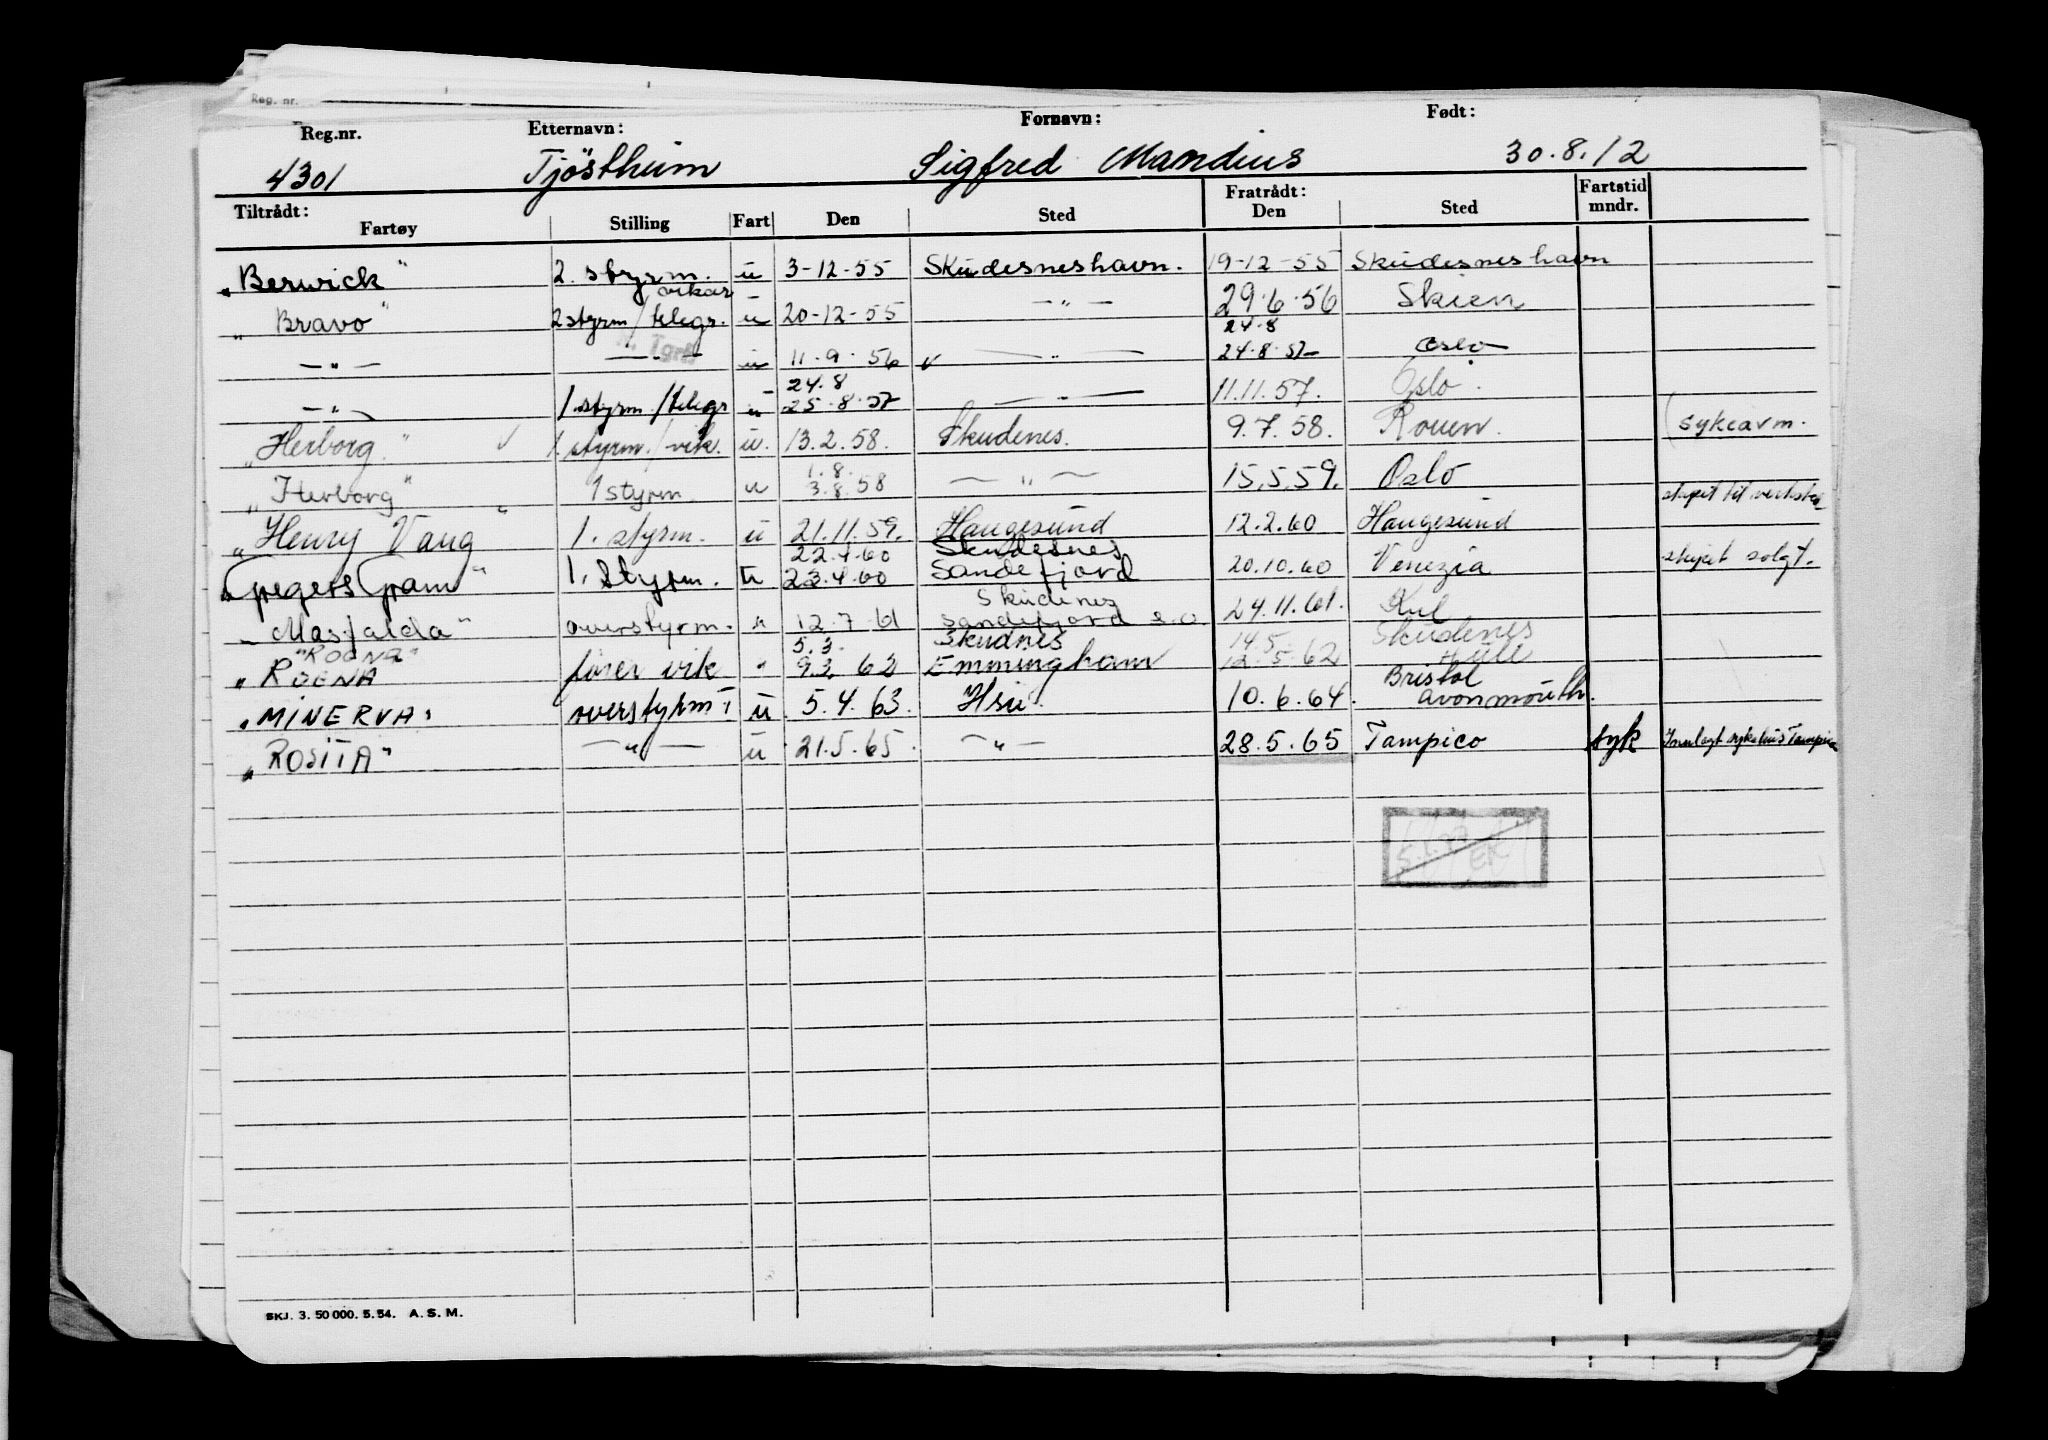 Reg. nr.
Reg.nr. Etternavn: Fornavn: Født:
4301 Tjöstheim Sigfred Mandius 30.8.12
Tiltrådt: Fratrådt: Fartstid mndr.
Fartøy Stilling Fart Den Sted Den Sted
"Berwick" 2. styrm. u 3-12-55 Skudesneshavn. 19-12-55 Skudesneshavn
vikar
"Bravo" 2 styrm/telegr. u 20-12-55 —"— 29.6.56 Skien
24.8
—"— —"— Tgrf u 11.9.56 —"— 24.8.57 Oslo
24.8
—"— 1 styrm/telegr u 25.8.57 —"— 11.11.57. Oslo.
"Herborg." 1. styrm./vik. u. 13.2.58. Skudenes. 9.7.58. Rouen. sykeavm.
1.8.
"Herborg" 1 styrm u 3.8.58 —"— 15.5.59. Oslo skipet til verksted
"Henry Vang" 1. styrm. u 21.11.59. Haugesund 12.2.60 Haugesund
22.4.60 Skudesnes
"Gregers Gram" 1. styrm. u 23.4.60 Sandefjord 20.10.60 Venezia skipet solgt.
Skudenes
"Masfalda" overstyrm. " 12.7.61 Sandefjord s.o 24.11.61. Kiel
"ROENA" 5.3. Skudnes 14.5. Skudenes
"ROENA" fører vik " 9.3.62 Emmingham 12.5.62 Hull
Bristol
"MINERVA" overstyrm u 5.4.63. Hsu. 10.6.64. Avonmouth.
"ROSITA" —"— u 21.5.65. —"— 28.5.65 Tampico syk Innlagt sykehus Tampico
SKJ. 3. 50 000. 5.54. A.S.M.